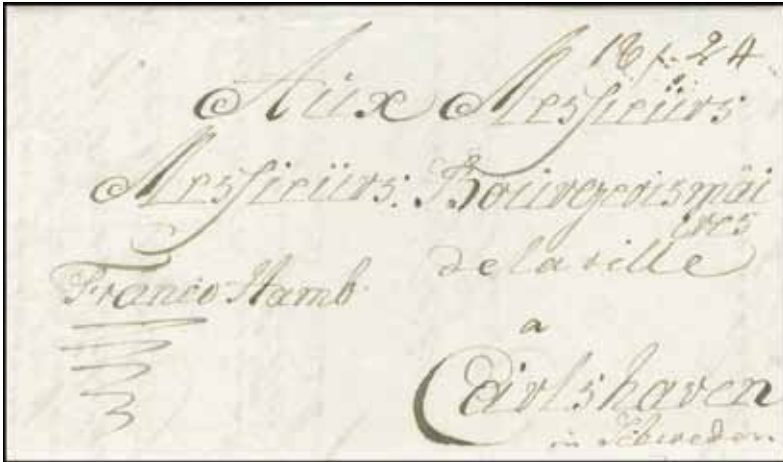 18 f. 24
Aüx Messieürs
Messieürs: Boürgerismäi
tres
de la ville
Franco Hamb.
a
Carlshaven
in Schweden